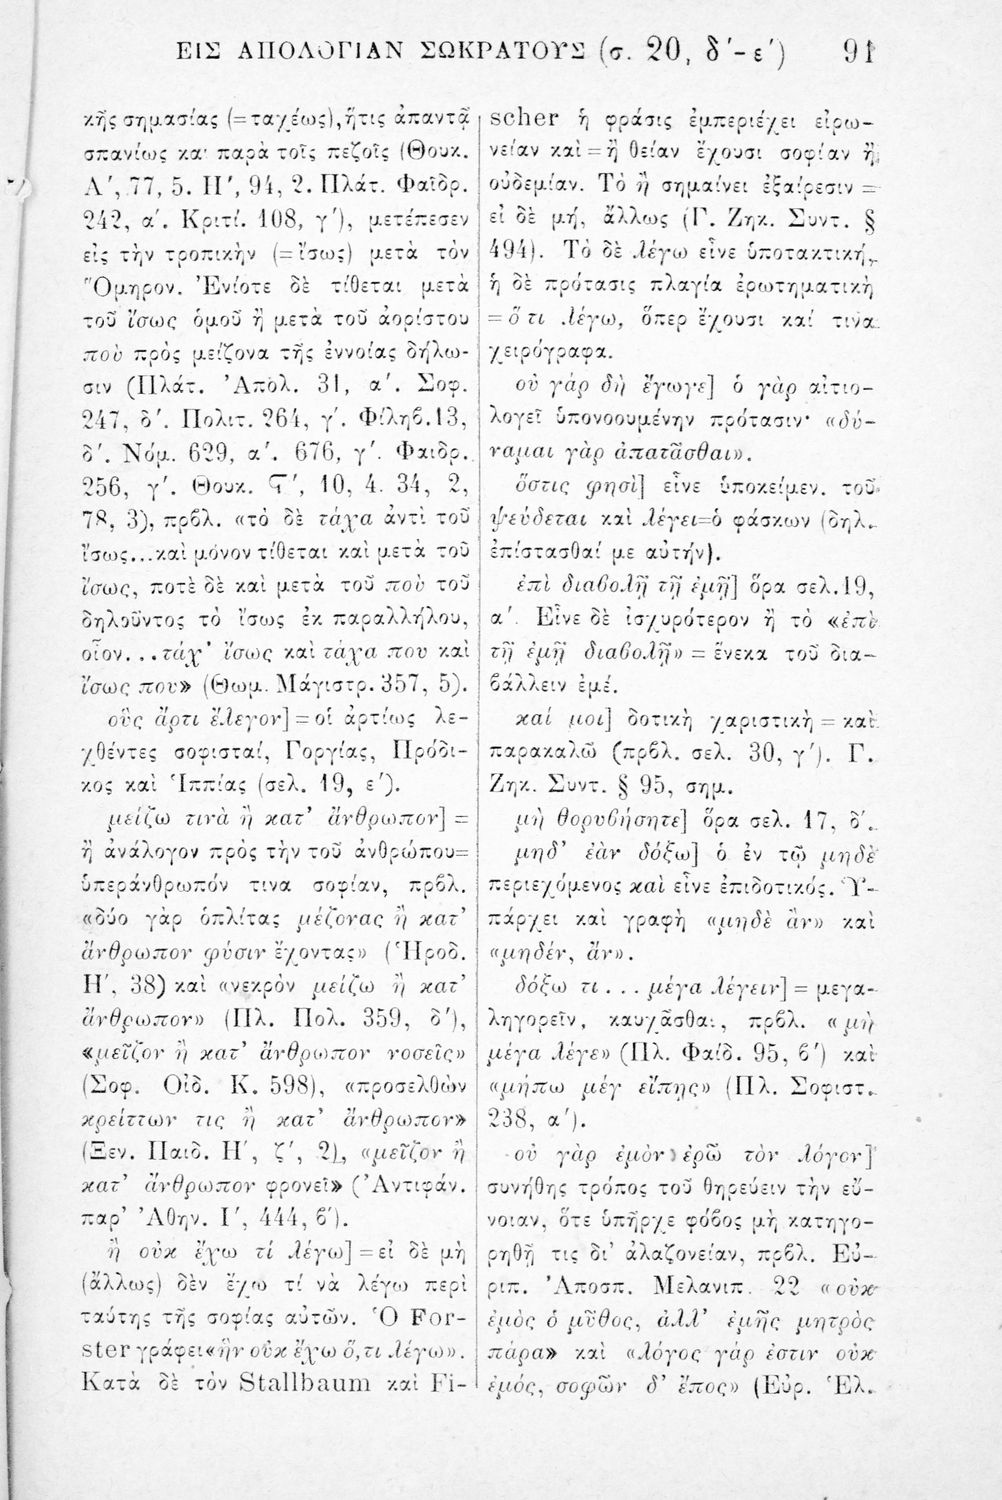 ΕΙΣ ΑΠΟΛΟΓΙΑΝ ΣΩΚΡΑΤΟΥΣ (σ. 20, δ΄-ε΄) 91
κῆς σημασίας (=ταχέως), ἥτις ἀπαντᾷ
σπανίως καὶ παρὰ τοῖς πεζοῖς (Θουκ.
Α΄, 77, 5. Η΄, 94, 2. Πλάτ. Φαῖδρ.
242, α΄. Κριτί. 108, γ΄), μετέπεσεν
εἰς τὴν τροπικὴν (=ἴσως) μετὰ τὸν
Ὅμηρον. Ἐνίοτε δὲ τίθεται μετὰ
τοῦ ἴσως ὁμοῦ ἢ μετὰ τοῦ ἀορίστου
ποὺ πρὸς μείζονα τῆς ἐννοίας δήλω-
σιν (Πλάτ. Ἀπολ. 31, α΄. Σοφ.
247, δ΄. Πολιτ. 264, γ΄. Φίληβ. 13,
δ΄. Νόμ. 629, α΄. 676, γ΄. Φαιδρ.
256, γ΄. Θουκ. Ϛ΄, 10, 4. 34, 2,
78, 3), πρβλ. «τὸ δὲ τάχα ἀντὶ τοῦ
ἴσως...καὶ μόνον τίθεται καὶ μετὰ τοῦ
ἴσως, ποτὲ δὲ καὶ μετὰ τοῦ ποὺ τοῦ
δηλοῦντος τὸ ἴσως ἐκ παραλλήλου,
οἷον...τάχ' ἴσως καὶ τάχα που καὶ
ἴσως που» (Θωμ. Μάγιστρ. 357, 5).
οὓς ἄρτι ἔλεγον] = οἱ ἀρτίως λε-
χθέντες σοφισταί, Γοργίας, Πρόδι-
κος καὶ Ἱππίας (σελ. 19, ε΄).
μείζω τινὰ ἢ κατ' ἄνθρωπον] =
ἢ ἀνάλογον πρὸς τὴν τοῦ ἀνθρώπου=
ὑπεράνθρωπόν τινα σοφίαν, πρβλ.
«δύο γὰρ ὁπλίτας μέζονας ἢ κατ'
ἄνθρωπον φύσιν ἔχοντας» (Ἡροδ.
Η΄, 38) καὶ «νεκρὸν μείζω ἢ κατ'
ἄνθρωπον» (Πλ. Πολ. 359, δ΄),
«μεῖζον ἢ κατ' ἄνθρωπον νοσεῖς»
(Σοφ. Οἰδ. Κ. 598), «προσελθὼν
κρείττων τις ἢ κατ' ἄνθρωπον»
(Ξεν. Παιδ. Η΄, ζ΄, 2), «μεῖζον ἢ
κατ' ἄνθρωπον φρονεῖ» (Ἀντιφάν.
παρ' Ἀθην. Ι΄, 444, β΄).
ἢ οὐκ ἔχω τί λέγω] = εἰ δὲ μὴ
(ἄλλως) δὲν ἔχω τί νὰ λέγω περὶ
ταύτης τῆς σοφίας αὐτῶν. Ὁ For-
ster γράφει «ἣν οὐκ ἔχω ὅ,τι λέγω».
Κατὰ δὲ τὸν Stallbaum καὶ Fi-
scher ἡ φράσις ἐμπεριέχει εἰρω-
νείαν καὶ = ἢ θείαν ἔχουσι σοφίαν ἢ
οὐδεμίαν. Τὸ ἢ σημαίνει ἐξαίρεσιν =
εἰ δὲ μή, ἄλλως (Γ. Ζηκ. Συντ. §
494). Τὸ δὲ λέγω εἶνε ὑποτακτική,
ἡ δὲ πρότασις πλαγία ἐρωτηματικὴ
= ὅ τι λέγω, ὅπερ ἔχουσι καί τινα
χειρόγραφα.
οὐ γάρ δὴ ἔγωγε] ὁ γὰρ αἰτιο-
λογεῖ ὑπονοουμένην πρότασιν· «δύ-
ναμαι γὰρ ἀπατᾶσθαι».
ὅστις φησὶ] εἶνε ὑποκείμεν. τοῦ
ψεύδεται καὶ λέγει=ὁ φάσκων (δηλ.
ἐπίστασθαί με αὐτήν).
ἐπὶ διαβολῇ τῇ ἐμῇ] ὅρα σελ. 19,
α΄. Εἶνε δὲ ἰσχυρότερον ἢ τὸ «ἐπὶ
τῇ ἐμῇ διαβολῇ» = ἕνεκα τοῦ δια-
βάλλειν ἐμέ.
καί μοι] δοτικὴ χαριστικὴ = καὶ
παρακαλῶ (πρβλ. σελ. 30, γ΄). Γ.
Ζηκ. Συντ. § 95, σημ.
μὴ θορυβήσητε] ὅρα σελ. 17, δ΄.
μηδ' ἐὰν δόξω] ὁ ἐν τῷ μηδὲ
περιεχόμενος καὶ εἶνε ἐπιδοτικός. Ὑ-
πάρχει καὶ γραφὴ «μηδὲ ἂν» καὶ
«μηδέν, ἄν».
δόξω τι... μέγα λέγειν] = μεγα-
ληγορεῖν, καυχᾶσθαι, πρβλ. «μὴ
μέγα λέγε» (Πλ. Φαίδ. 95, β΄) καὶ
«μήπω μέγ εἴπῃς» (Πλ. Σοφιστ.
238, α΄).
οὐ γὰρ ἐμὸν ἐρῶ τὸν λόγον]
συνήθης τρόπος τοῦ θηρεύειν τὴν εὔ-
νοιαν, ὅτε ὑπῆρχε φόβος μὴ κατηγο-
ρηθῇ τις δι' ἀλαζονείαν, πρβλ. Εὐ-
ριπ. Ἀποσπ. Μελανιπ. 22 «οὐκ
ἐμὸς ὁ μῦθος, ἀλλ' ἐμῆς μητρὸς
πάρα» καὶ «λόγος γάρ ἐστιν οὐκ
ἐμός, σοφῶν δ' ἔπος» (Εὐρ. Ἑλ.